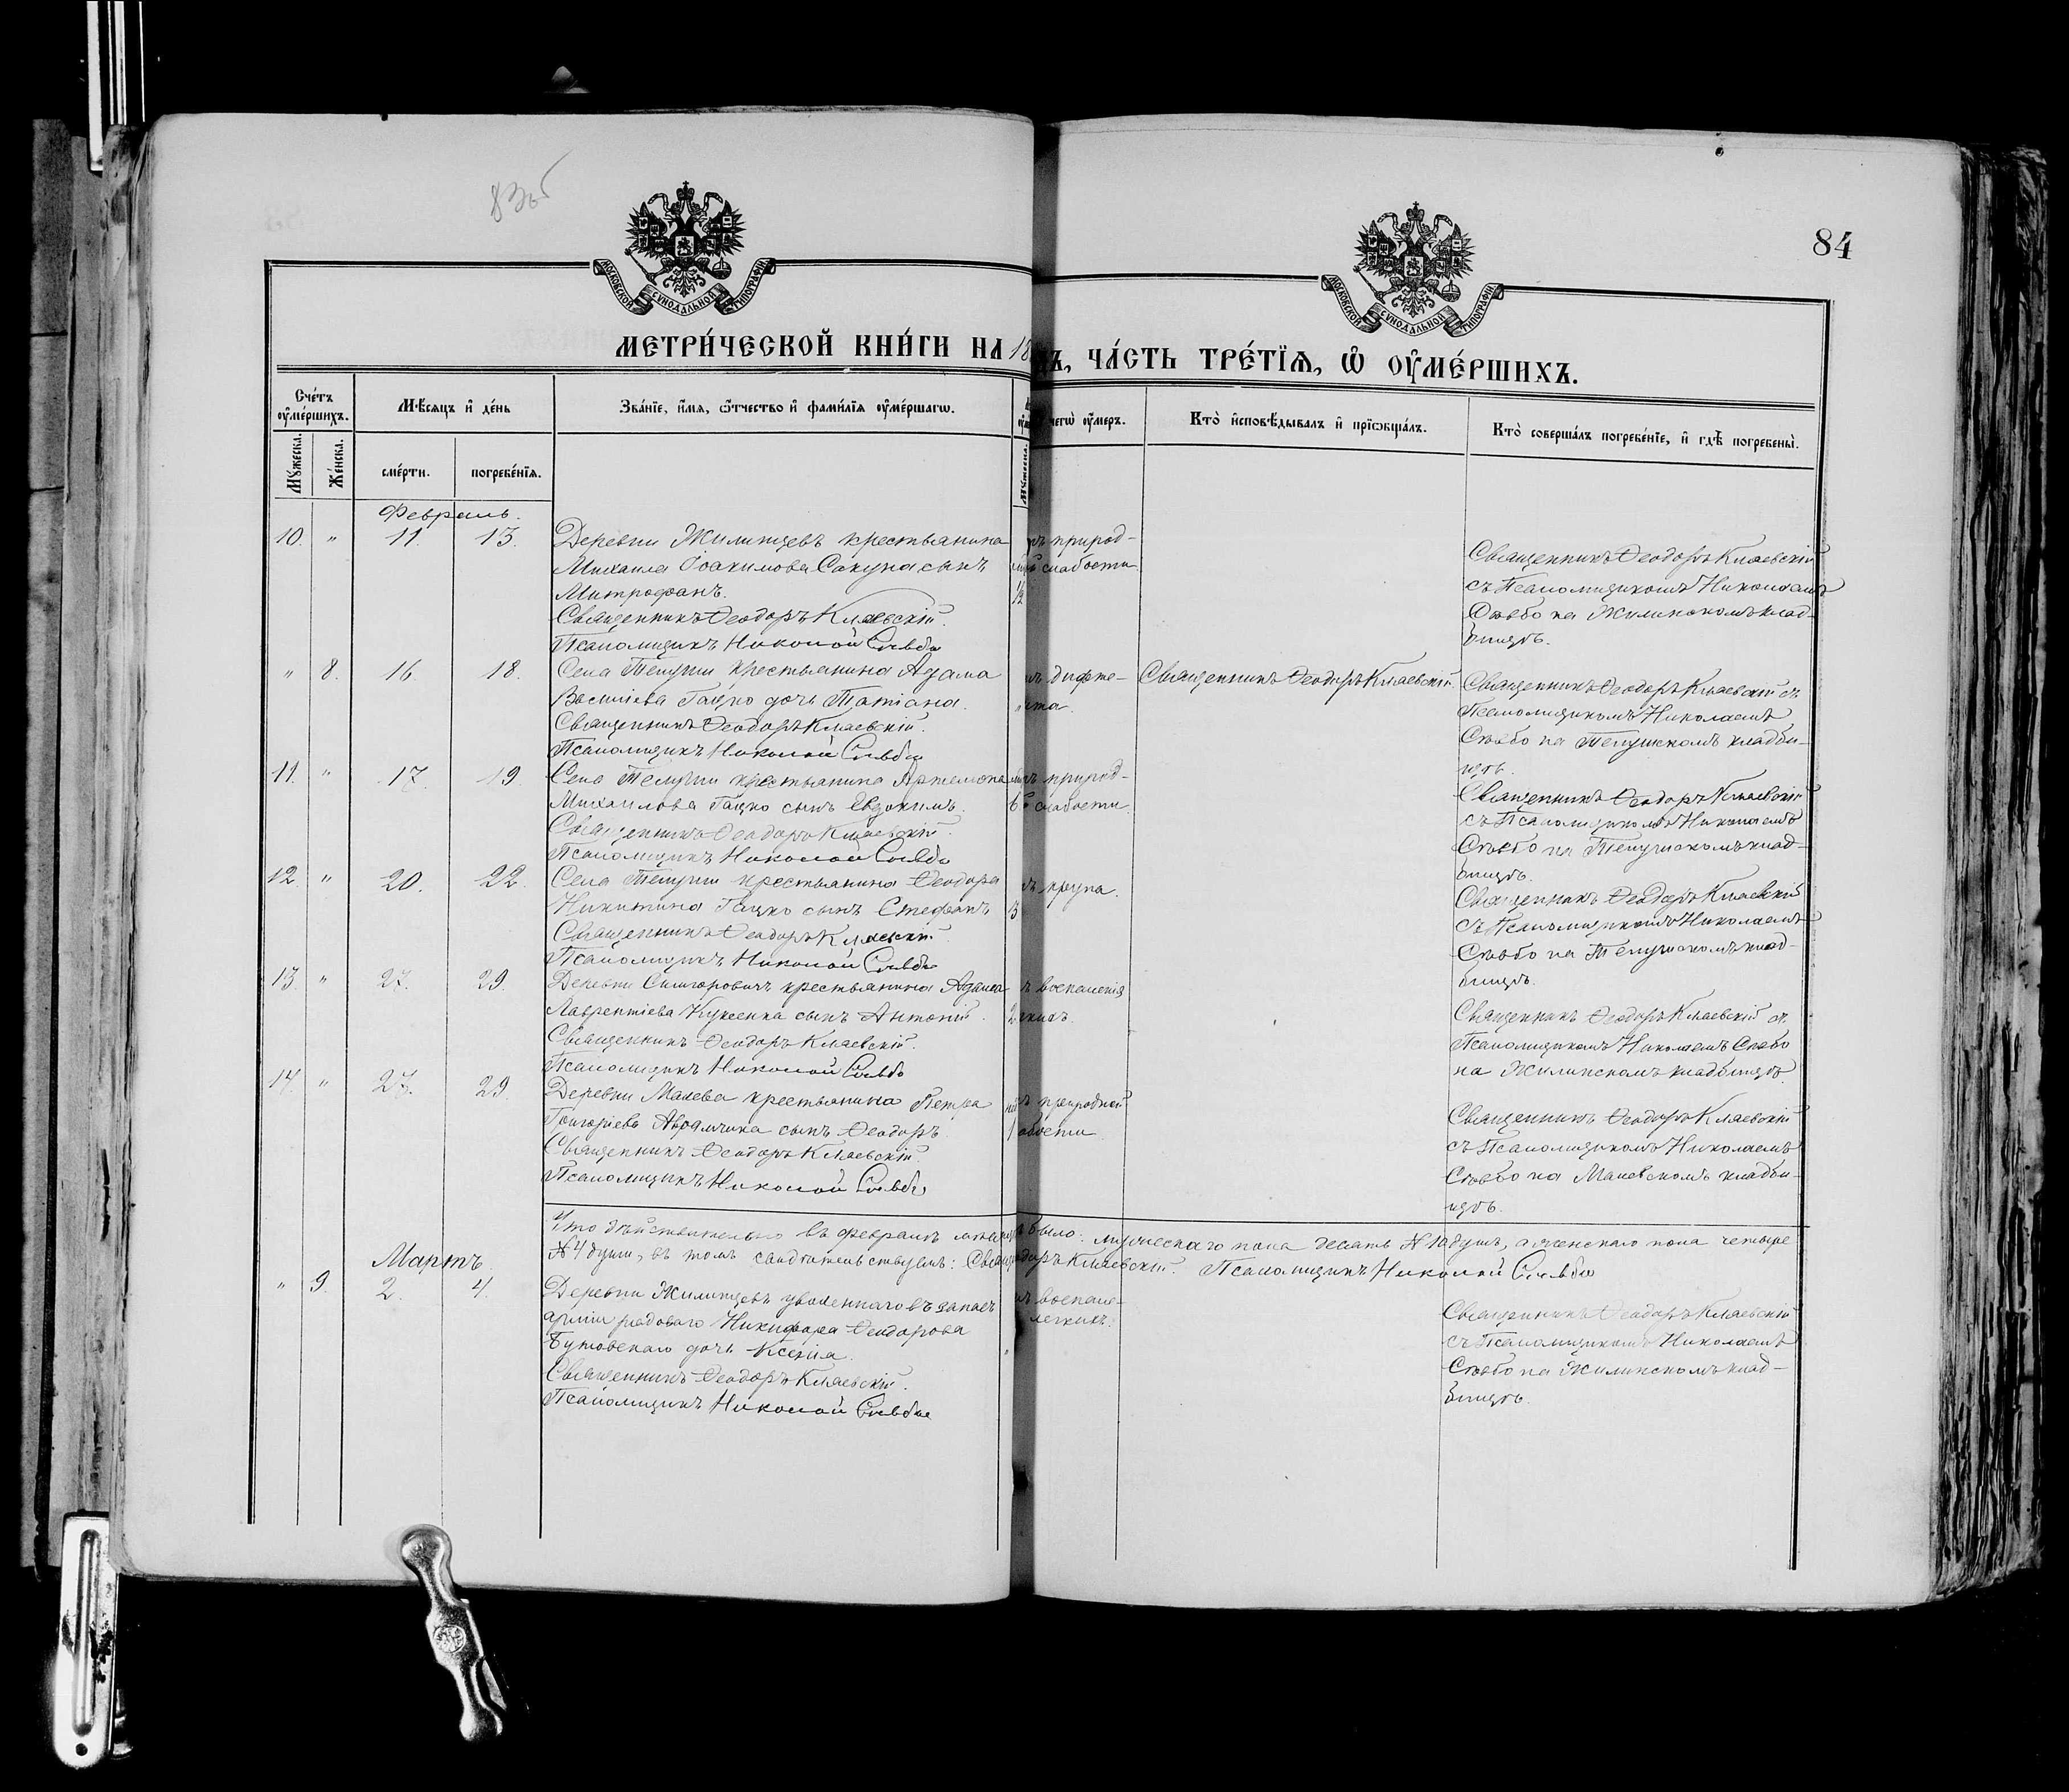 83об
84
МОСКОВСКОЙ СѴНОДАЛЬНОЙ ТИПОГРАФІИ
МОСКОВСКОЙ СѴНОДАЛЬНОЙ ТИПОГРАФІИ
МЕТРИ́ЧЕСКОЙ КНИ́ГИ НА 18
Ъ, ЧА́СТЬ ТРЕ́ТІѦ, Ѡ ОУМЕ́РШИХЪ.
Сче́тъ оуме́ршихъ.
Мѣсяцъ и де́нь
Зва́нїе, и́мя, ѻ́тчество и фами́лїя оуме́ршагѡ.
чегѡ̀ оу́меръ.
Кто̀ исповѣ́дывалъ и прїѡбща́лъ.
Кто̀ соверша́лъ погребе́нїе, и гдѣ̀ погребены̀.
Мꙋ́жеска.
Же́нска.
сме́рти.
погребе́нїя.
Мꙋ́жеска.
Февраль.
10. " 11. 13. Деревни Жилинцевъ крестьянина
Михаила Іоакимова Сакуна сынъ
Митрофанъ.
Священникъ Ѳеодоръ Кляевскій.
Псаломщикъ Николай Съвбо
природ-
слабости
1/2
Священникъ Ѳеодоръ Кляевскій
съ Псаломщикомъ Николаемъ
на Жилинскомъ клад-
бищѣ.
" 8. 16 18. Села крестьянина Адама
Василіева Гацко дочь Татіана.
Священникъ Ѳеодоръ Кляевскій.
Псаломщикъ Николай
дифте-
рита
Священникъ Ѳеодоръ Кляевскій.
Священникъ Ѳеодоръ Кляевскій съ
Псаломщикомъ Николаемъ
на кладби-
щѣ.
11. " 17. 19. Села крестьянина Артемона
Михаилова Гацко сынъ Евдокимъ.
Священникъ Ѳеодоръ Кляевскій.
Псаломщикъ Николай
природ-
слабости
Священникъ Ѳеодоръ Кляевскій
съ Псаломщикомъ Николаемъ
на клад-
бищѣ.
12. " 20. 22. Села крестьянина Ѳеодора
Никитина Гацко сынъ Стефанъ
Священникъ Ѳеодоръ Кляевскій
Псаломщикъ Николай
крупа.
3
Священникъ Ѳеодоръ Кляевскій
съ Псаломщикомъ Николаемъ
на клад-
бищѣ.
13. " 27. 29. Деревни крестьянина Адама
Лаврентіева сынъ Антоній.
Священникъ Ѳеодоръ Кляевскій.
Псаломщикъ Николай
воспаленія
2
Священникъ Ѳеодоръ Кляевскій съ
Псаломщикомъ Николаемъ
на Жилинскомъ кладбищѣ.
14. " 27. 29. Деревни Макева крестьянина Петра
Григоріева Аврамчика сынъ Ѳеодоръ
Священникъ Ѳеодоръ Кляевскій
Псаломщикъ Николай
природной
1
Священникъ Ѳеодоръ Кляевскій
съ Псаломщикомъ Николаемъ
на Макевскомъ кладби-
щѣ.
Что дѣйствительно въ февралѣ было: мужескаго пола десять № 10 душъ, а женскаго пола четыре
№ 4 души, въ томъ свидѣтельствуемъ: Кляевскій. Псаломщикъ Николай
Мартъ.
" 9. 2. 4. Деревни Жилинцевъ уволеннаго въ запасъ
арміи рядоваго Никифора Ѳеодорова
Бутовскаго дочь Ксенія.
Священникъ Ѳеодоръ Кляевскій.
Псаломщикъ Николай
воспале-
легкихъ.
Священникъ Ѳеодоръ Кляевскій
съ Псаломщикомъ Николаемъ
на Жилинскомъ клад-
бищѣ.